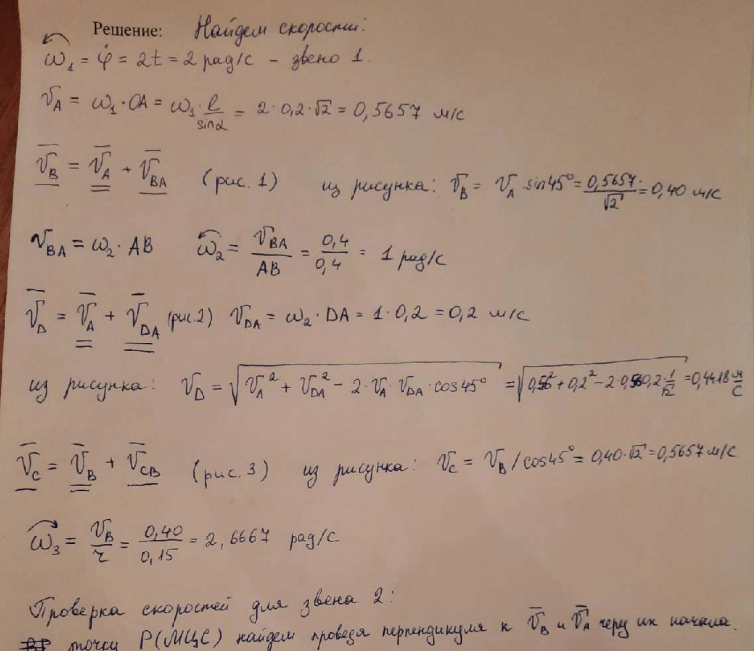 Решение: Найдем скорости:
ω₁ = φ̇ = 2t = 2 рад/с - звено 1
v_A = ω₁·OA = ω₁·l/sinα = 2·0,2·√2 = 0,5657 м/с
v̄_B = v̄_A + v̄_BA (рис. 1) из рисунка: v_B = v_A·sin45° = 0,5657/√2 = 0,40 м/с
v_BA = ω₂·AB ω₂ = v_BA/AB = 0,4/0,4 = 1 рад/с
v̄_D = v̄_A + v̄_DA (рис.2) v_DA = ω₂·DA = 1·0,2 = 0,2 м/с
из рисунка: v_D = √(v_A² + v_DA² - 2·v_A·v_DA·cos45°) = √(0,56² + 0,2² - 2·0,56·0,2·1/√2) = 0,4418 м/с
v̄_C = v̄_B + v̄_CB (рис. 3) из рисунка: v_C = v_B/cos45° = 0,40·√2 = 0,5657 м/с
ω₃ = v_B/r = 0,40/0,15 = 2,6667 рад/с
Проверка скоростей для звена 2:
точку P(МЦС) найдем проведя перпендикуля к v̄_B и v̄_A через их начала.